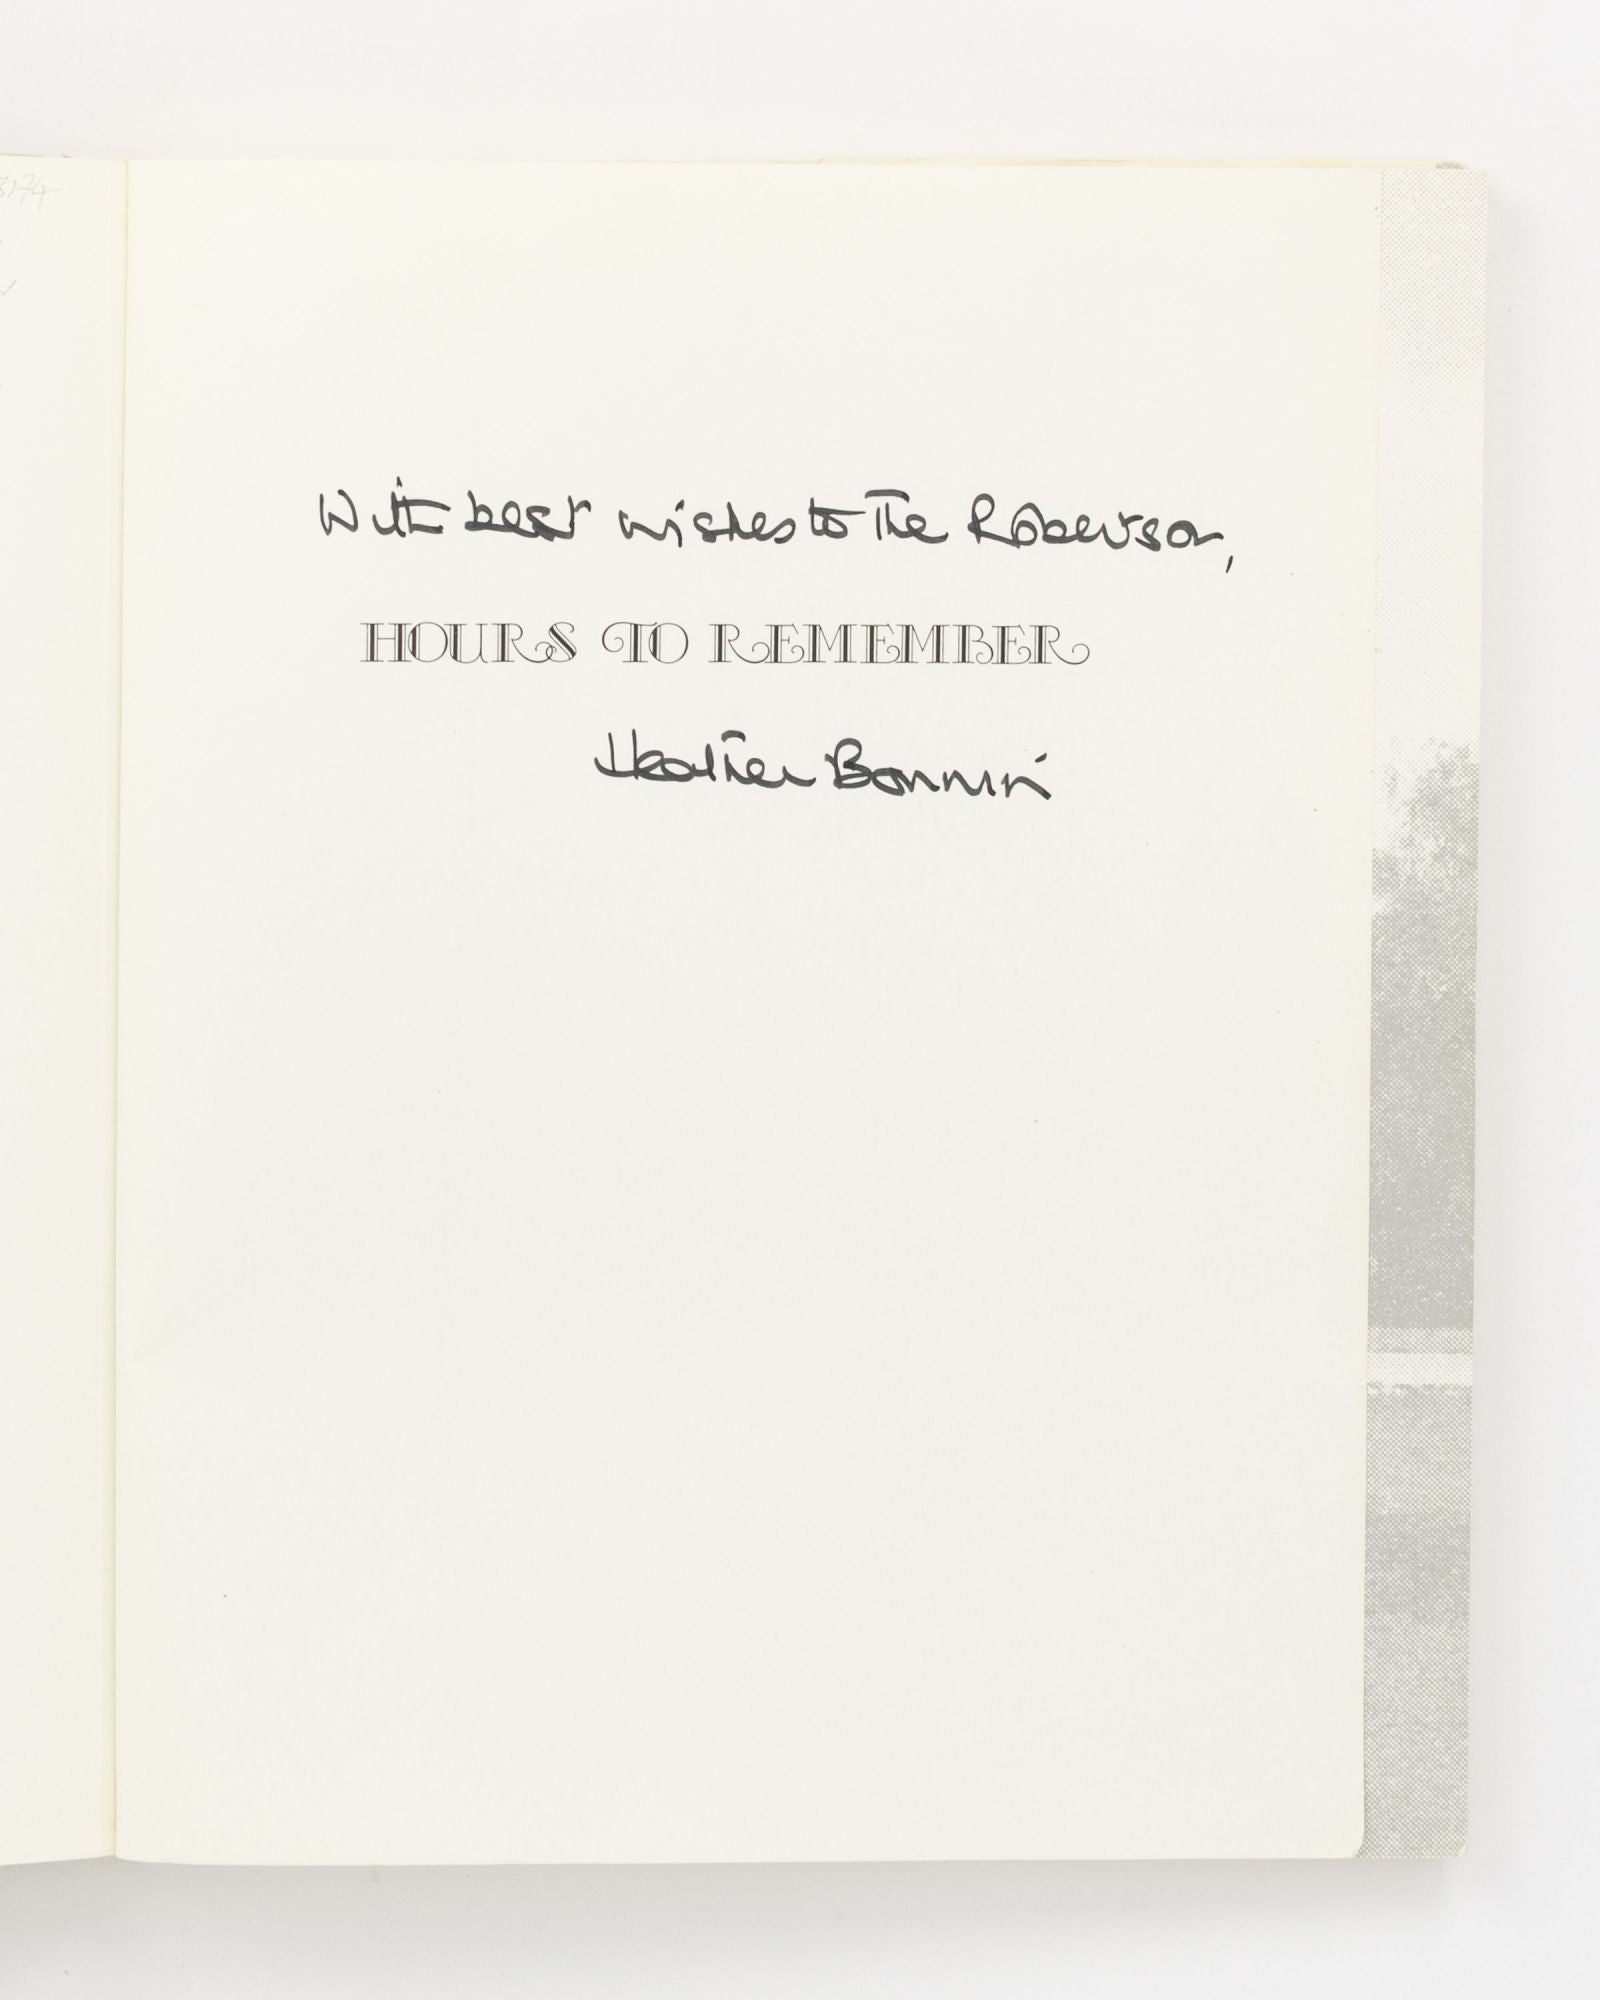 3174
With best wishes to The Robertson,
HOURS TO REMEMBER
Heather Bonnin